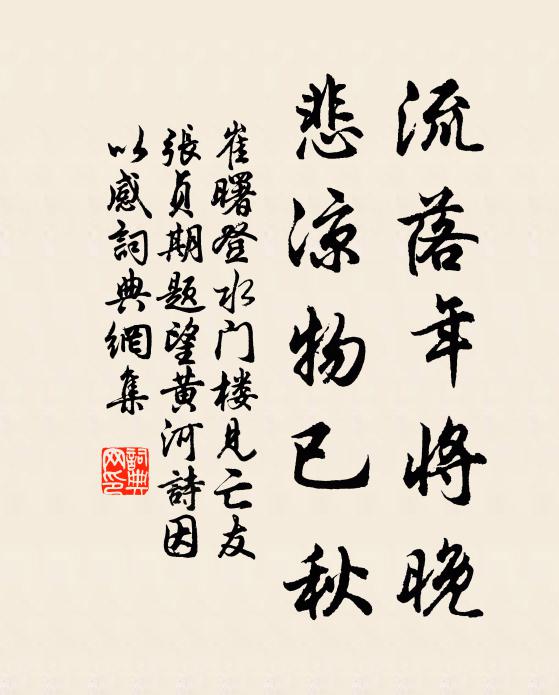 流落年将晚
悲凉物已秋
崔曙登水门楼见亡友
张贞期题望黄河詩因
以感词典網集
詞典網印